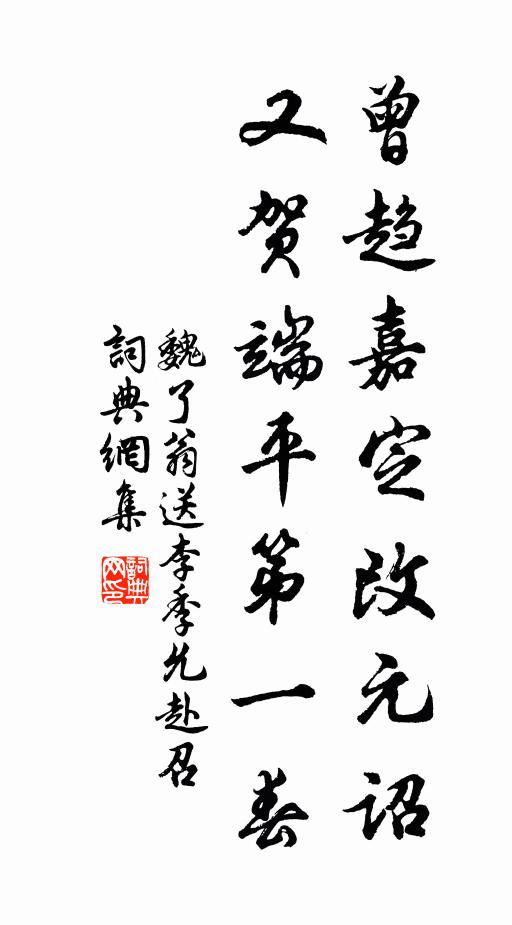 曾趋嘉定改元诏
又贺端平第一春
魏了翁送李季允赴召
詞典網集
詞典网印